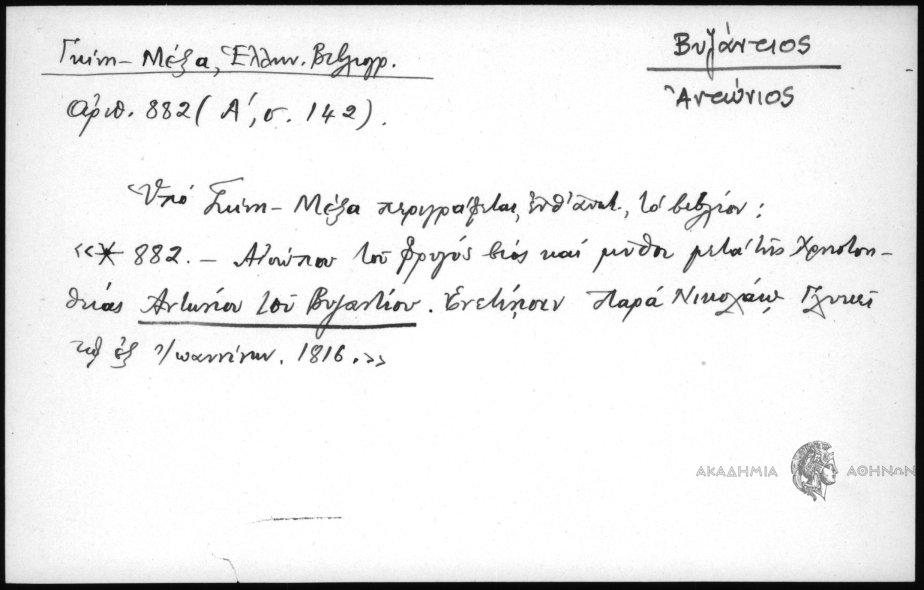 Γκίνη – Μέξα, Ἑλλην. Βιβλιογρ.
Βυζάντιος
Ἀντώνιος
ἀριθ. 882 (Α΄, σ. 142).
Ὑπὸ Γκίνη – Μέξα περιγράφεται, ἔνθ' ἀνωτ., τὸ βιβλίον:
«* 882. – Αἰσώπου τοῦ Φρυγὸς βίος καὶ μῦθοι μετὰ τῆς Χρηστοη-
θείας Ἀντωνίου τοῦ Βυζαντίου. Ἐνετίῃσιν Παρὰ Νικολάῳ Γλυκεῖ
τῷ ἐξ Ἰωαννίνων. 1816.»
ΑΚΑΔΗΜΙΑ ΑΘΗΝΩΝ